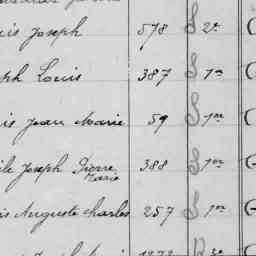 is Joseph 578 S 2e
ph Louis 387 S 1re
is Jean Marie 59 S 1re
le Joseph Pierre Marie 388 S 1re
is Auguste Charles 257 S 1re